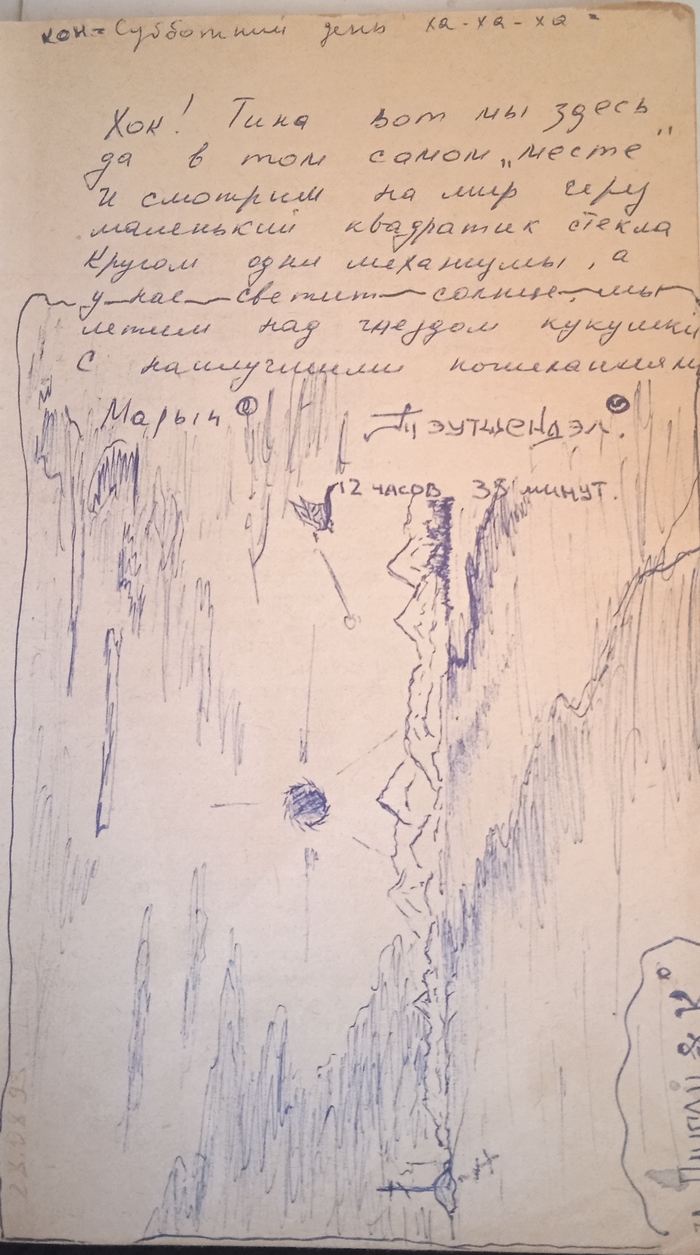 кон = Субботний день ха-ха-ха =
Хок! Тина вот мы здесь
да в том самом „месте"
И смотрим на мир через
маленький квадратик стекла
Кругом одни механизмы, а
у нас светит солнце, мы
летим над гнездом кукушки
С наилучшими пожеланиями
Марыч
12 часов 35 минут.
& К°